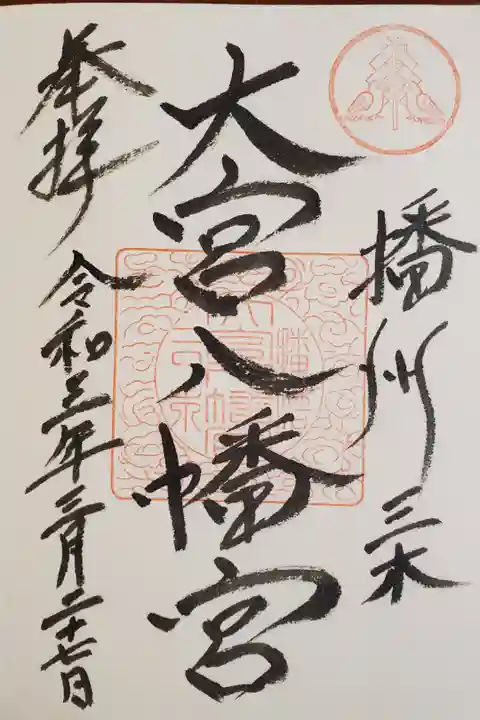 播州 三木
大宮八幡宮
奉拝 令和三年三月二十七日